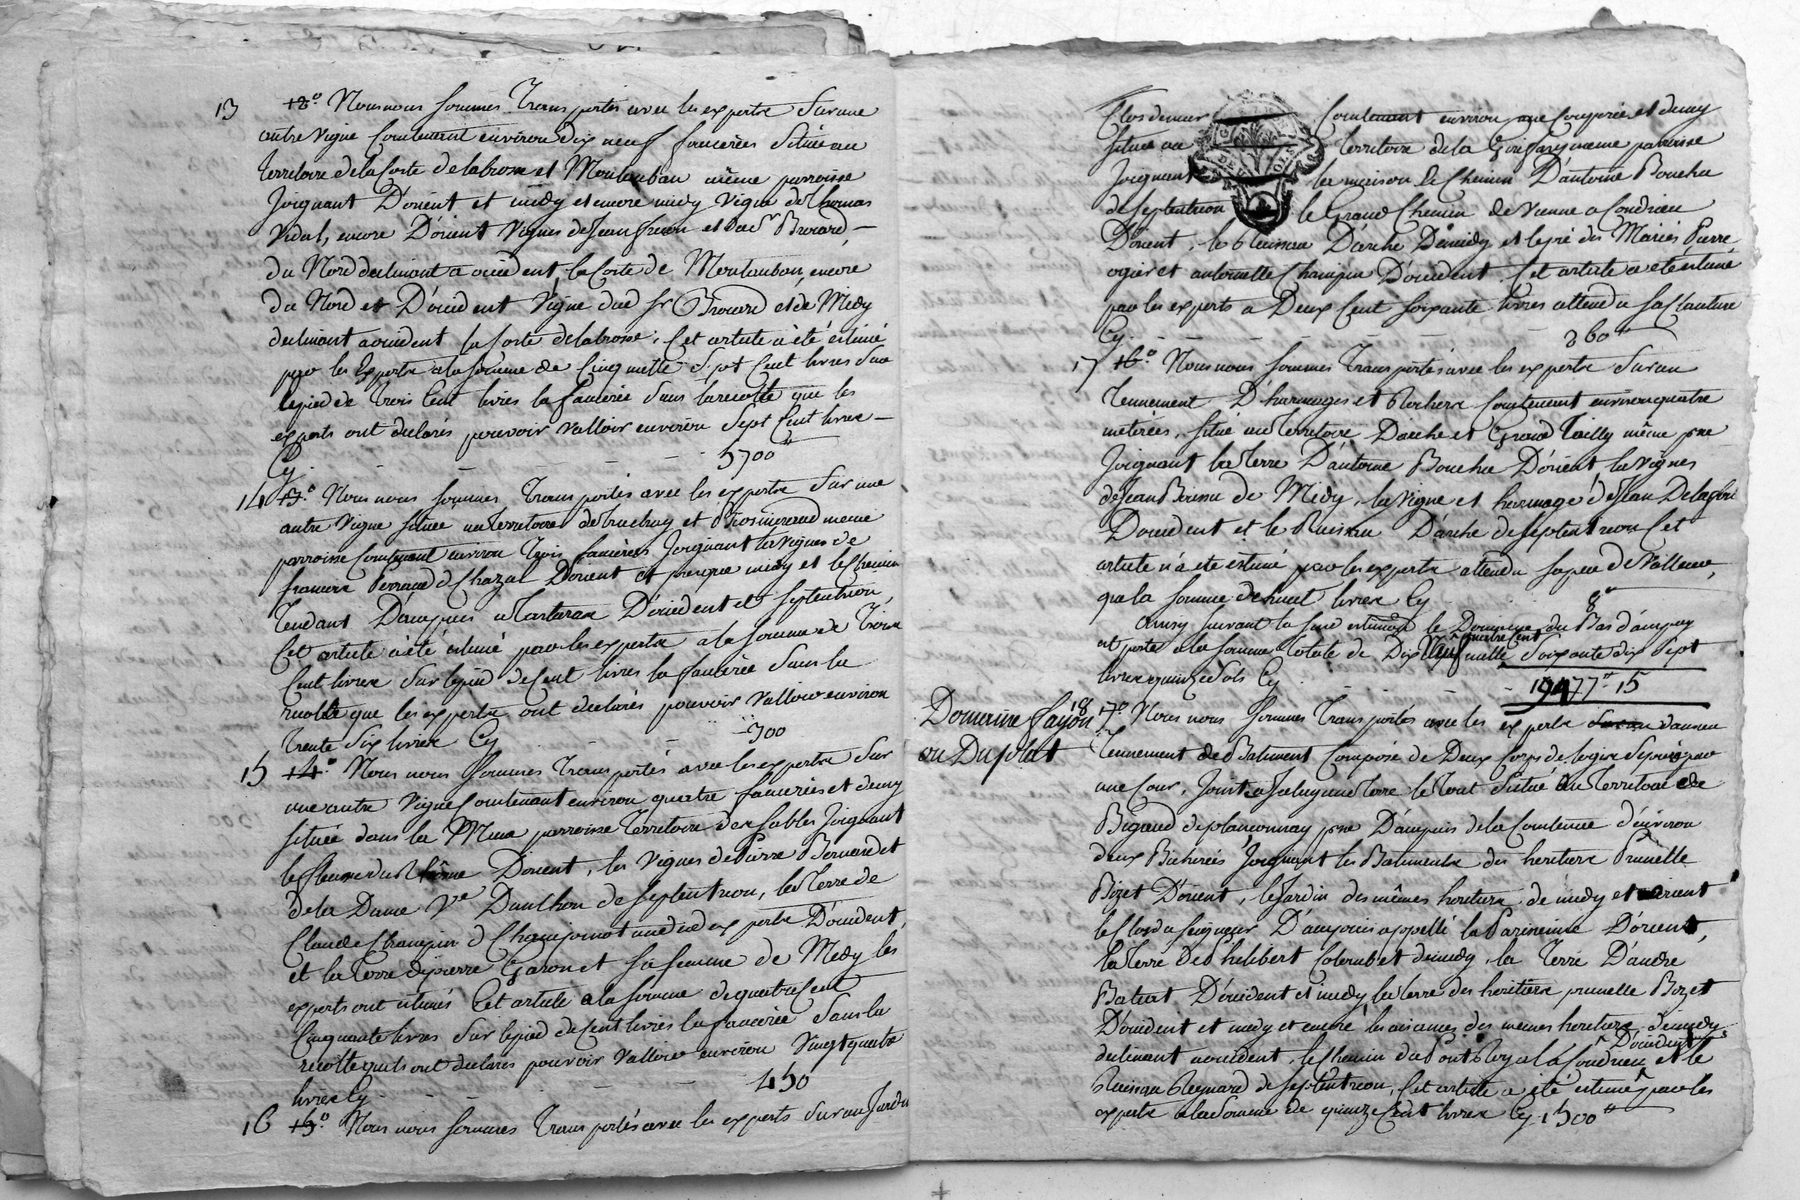 13 12.° Nous nous sommes Transportés avec les experts Sur une
autre vigne Contenant environ dix neuf fancérées Située au
Territoire de la Coste de labrosse et Montauban même parroisse
Joignant D'orient et midy et encore midy vigne de Thomas
Vidal, encore D'orient Vignes de Jean et dud. Sr
du Nord declinant a occident la Coste de Montauban, encore
du Nord et D'occident Vigne dud Sr et de Midy
declinant a occident la Coste de labrosse, Cet article a été estimé
par les Experts a la somme de Cinq mille Sept Cent livres Sur
le pied de Trois Cent livres la fancérée Sans la recolte que les
experts ont declarés pouvoir valloir environ Sept Cent livres
Cy 5700tt
14 13.° Nous nous sommes Transportés avec les experts Sur une
autre Vigne Située au Territoire de et même
parroisse Contenant environ Trois fancérées Joignant les vignes de
Chazal D'orient et presque midy et le Chemin
Tendant D'ampuis a Tartaras D'occident et Septentrion,
Cet article a été estimé par les experts a la somme de Trois
Cent livres Sur le pied de Cent livres la fancérée Sans la
recolte que les experts ont declarés pouvoir valloir environ
Trente Six livres Cy 300
15 14.° Nous nous sommes Transportés avec les experts Sur
une autre Vigne Contenant environ quatre fancérées et demy
située dans la Même parroisse Territoire des Sables Joignant
le fleuve du Rhône D'orient, les vignes de Pierre Bernard et
de la Dame Ve Daulhon de Septentrion, les Terre de
Claude Champin d Champinot un des experts D'occident,
et la Terre de pierre Garon et sa femme de Midy les
experts ont estimés Cet article a la somme de quatre Cent
Cinquante livres Sur le pied de Cent livres la fancérée Sans la
recolte qu'ils ont declarés pouvoir valloir environ Vingt quatre
livres Cy 450
16 15.° Nous nous sommes Transportés avec les experts Sur un Jardin
Clos de mur Contenant environ une Couperée et demy
Située au Territoire de la même parroisse
Joignant la maison le Chemin D'antoine Bouchu
de Septentrion le Grand Chemin de Vienne a Condrieu
D'orient, le Ruisseau D'arche De midy et le pré des Mariés Pierre
ogier et antoinette Champin D'occident. Cet article a été estimé
par les experts a Deux Cent Soixante livres attendu sa Clauture
Cy 260tt
17 16.° Nous nous sommes Transportés avec les experts Sur un
Tennement D'harmages et Rochers Contenant environ quatre
metérées, Situé au Territoire D'arche et Grand Tailly même psse
Joignant la Terre D'antoine Bouchu D'orient, les Vignes
de Jean de Midy, la Vigne et harmage de Jean
D'occident et le Ruisseau D'arche de Septentrion Cet
article n'a été estimé par les experts attendu Sa peu de Valleur,
que la somme de huit livres Cy 8tt
ainsy suivant la susd estimation le Domaine du Bas d'ampuy
est porté a la somme totale de Dix neuf mille quatre Cent Soixante dix Sept
livres quinze Sols Cy 19477tt 15
Domaine fayon
ou Du plat
18 17.° Nous nous Sommes Transportés avec les experts Sur un dans un
Tennement de Batiment Composé de Deux Corps de logis Séparés par
une Cour, Jouxte a Seluy une Terre le Tout Situé au Territoire de
psse D'ampuis de la Contenue d'environ
deux Bicherées Joignant les Batiments des heritiers Prunelle
Bizet D'orient, le Jardin des mêmes heritiers de midy et orient
le Clos du Seigneur D'ampuis appellé la D'orient,
la Terre de Philibert Colombet de midy, la Terre D'andré
Baturt D'occident et midy la Terre des heritiers prunelle Bizet
D'occident et midy et encore les aisances des mêmes heritiers de midy
declinant a occident, le Chemin du Pont Royal a Condrieu D'occident et le
Ruisseau Reynard de Septentrion, Cet article a été estimé par les
experts a la Somme de quinze Cent livres Cy 1500tt